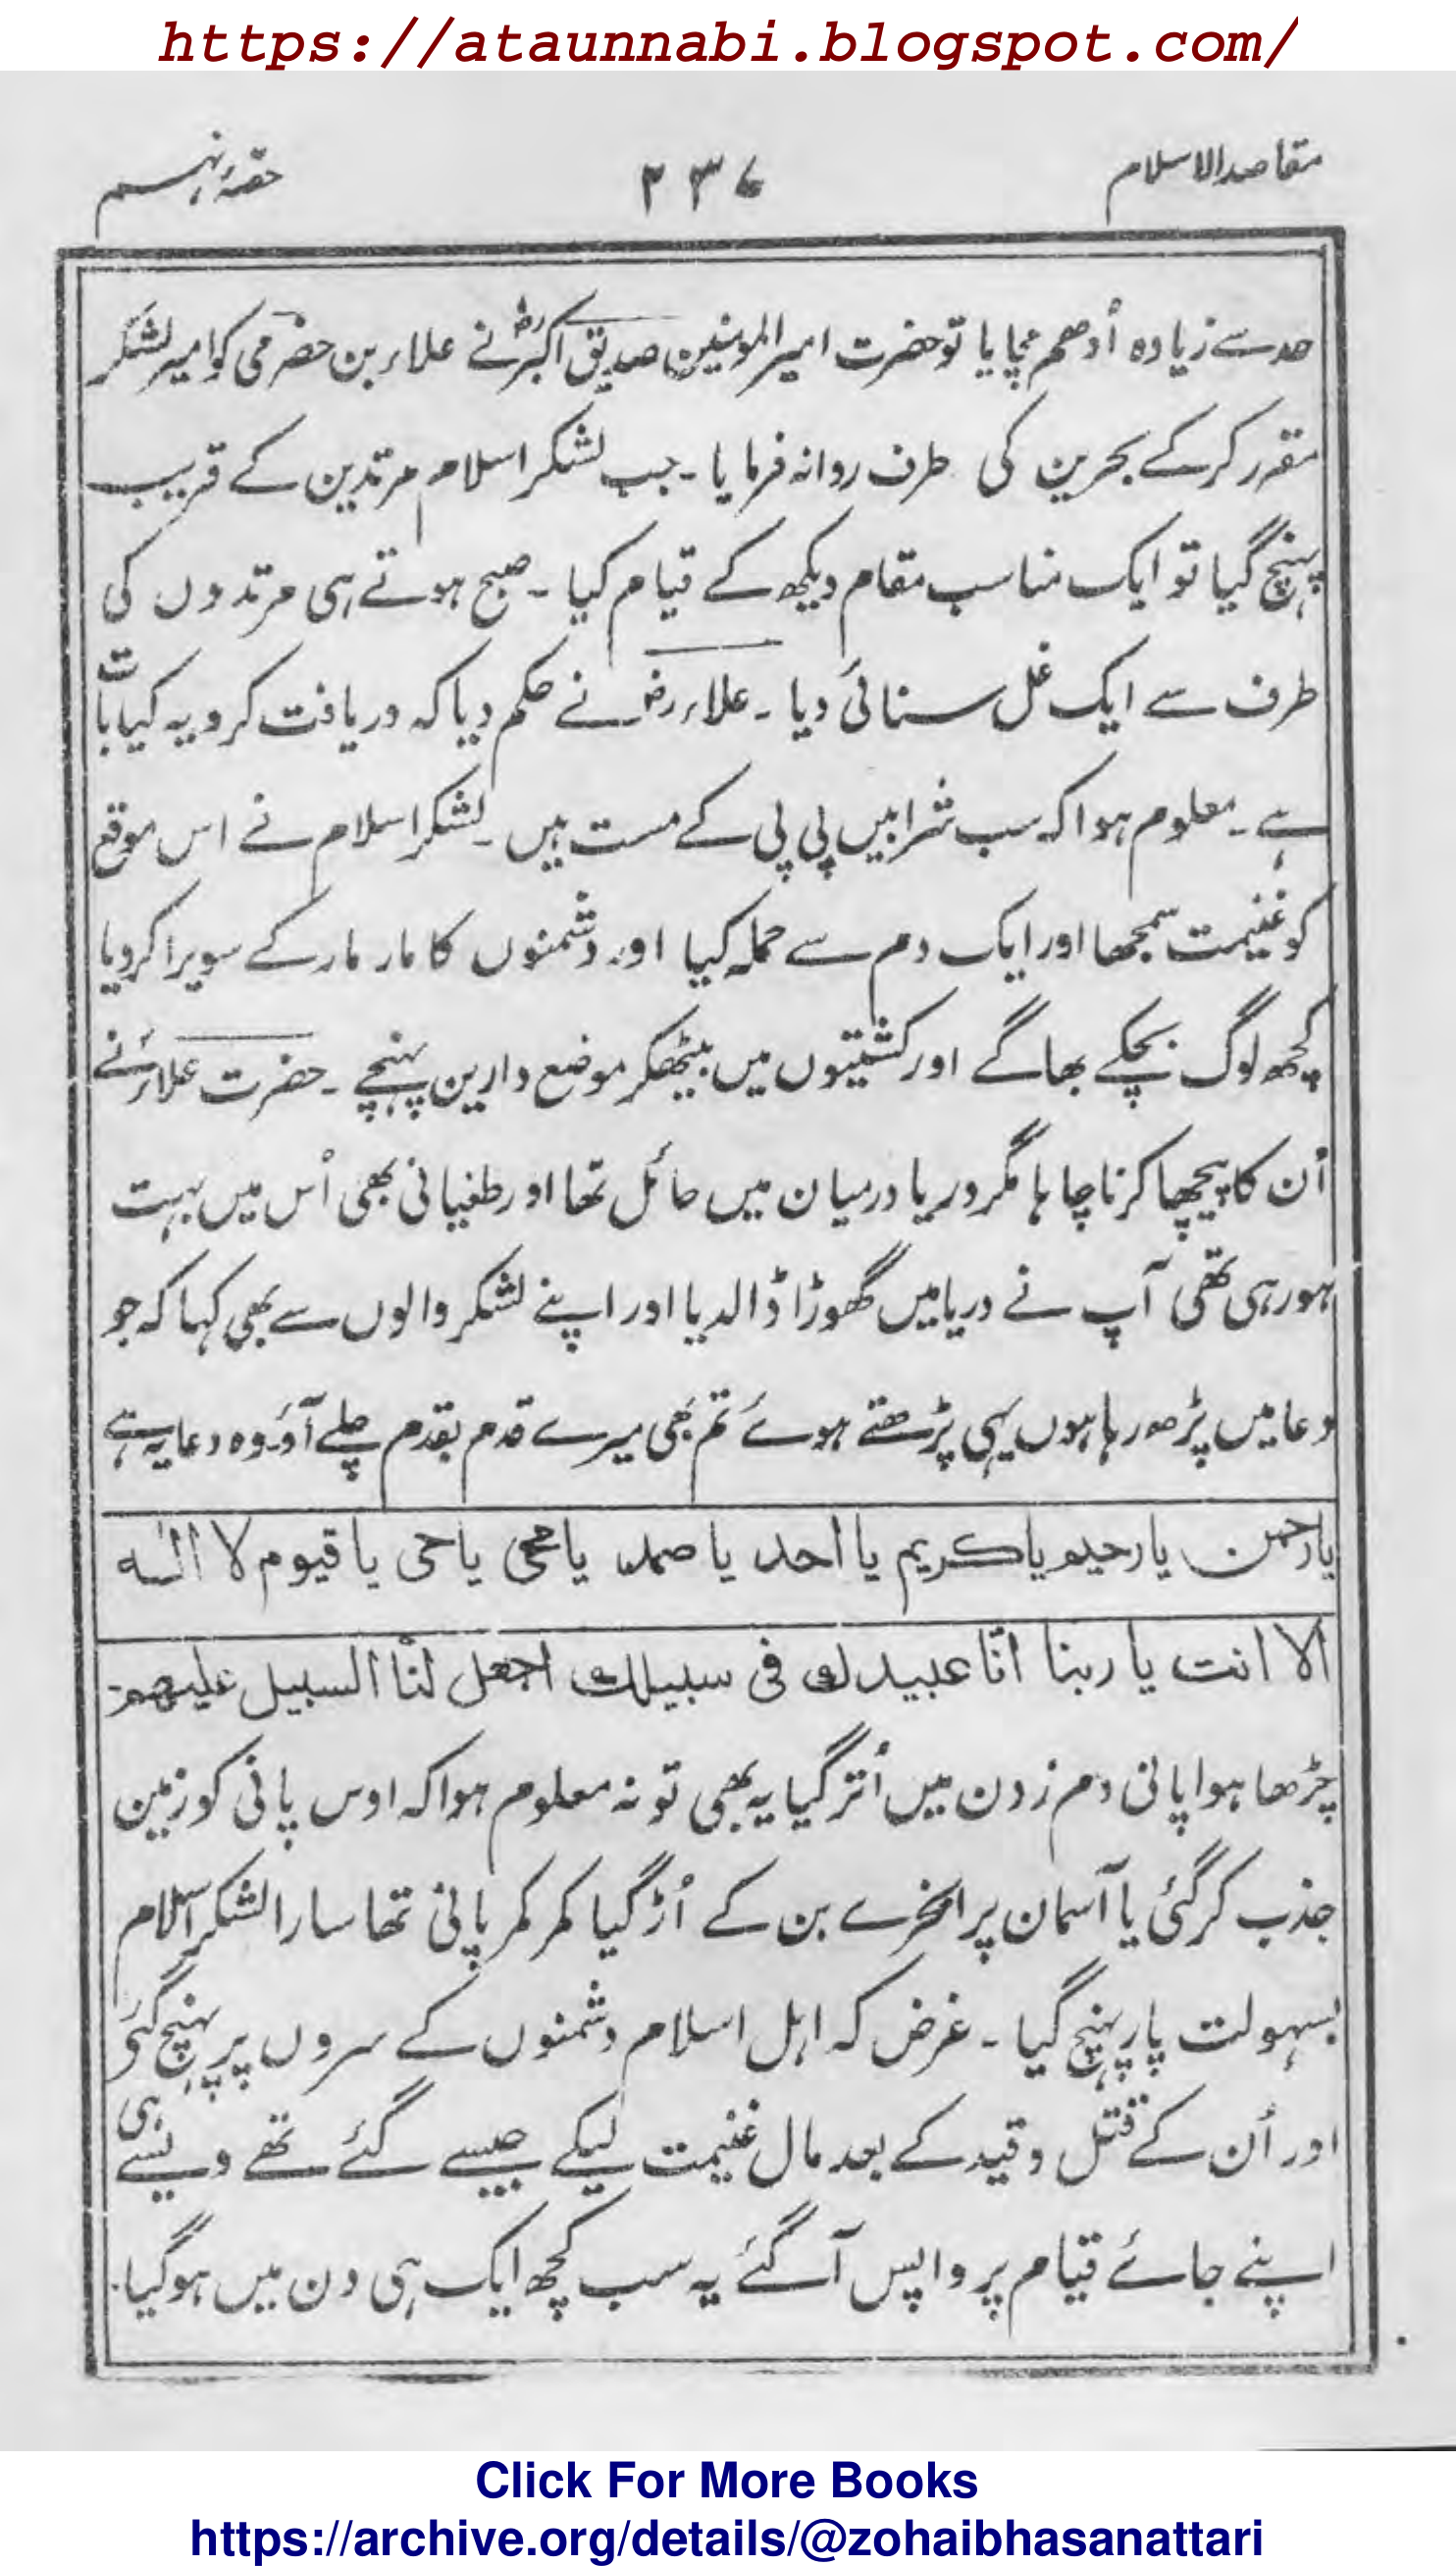 https://ataunnabi.blogspot.com/
مقاصد الاسلام ۲۳۷ حصۂ نہم
حد سے زیادہ اُدھم مچایا تو حضرت امیر المومنین صدیق اکبرؓ نے علاء بن حضرمی کو امیر لشکر
مقرر کرکے بحرین کی طرف روانہ فرمایا ۔ جب لشکر اسلام مرتدین کے قریب
پہنچ گیا تو ایک مناسب مقام دیکھ کے قیام کیا ۔ صبح ہوتے ہی مرتدوں کی
طرف سے ایک غل سنائی دیا ۔ علاء رضؓ نے حکم دیا کہ دریافت کرو یہ کیا بات
ہے ۔ معلوم ہوا کہ سب شرابیں پی پی کے مست ہیں ۔ لشکر اسلام نے اس موقع
کو غنیمت سمجھا اور ایک دم سے حملہ کیا اور دشمنوں کا مار مار کے سویرا کردیا
کچھ لوگ بچکے بھاگے اور کشتیوں میں بیٹھکر موضع دارین پہنچے ۔ حضرت علاءؓ نے
اُن کا پیچھا کرنا چاہا مگر دریا درمیان میں حائل تھا اور طغیانی بھی اُس میں بہت
ہو رہی تھی آپ نے دریا میں گھوڑا ڈالدیا اور اپنے لشکر والوں سے بھی کہا کہ جو
دعا میں پڑھ رہا ہوں یہی پڑھتے ہوئے تم بھی میرے قدم بقدم چلے آؤ۔ وہ دعا یہ ہے
یا رحمن یا رحیم یا کریم یا احد یا صمد یا محی یا حی یا قیوم لا الٰہ
الا انت یا ربنا انّا عبیدك فی سبیلك اجعل لنا السبیل علیهم۔
چڑھا ہوا پانی دم زدن میں اُتر گیا یہ بھی تو نہ معلوم ہوا کہ اوس پانی کو زمین
جذب کر گئی یا آسمان پر ابخرے بن کے اُڑ گیا کمر کمر پانی تھا سارا لشکر اسلام
بسہولت پار پہنچ گیا ۔ غرض کہ اہل اسلام دشمنوں کے سروں پر پہنچ گئے
اور اُن کے قتل و قید کے بعد مال غنیمت لیکے جیسے گئے تھے ویسے ہی
اپنے جائے قیام پر واپس آگئے یہ سب کچھ ایک ہی دن میں ہوگیا۔
Click For More Books
https://archive.org/details/@zohaibhasanattari